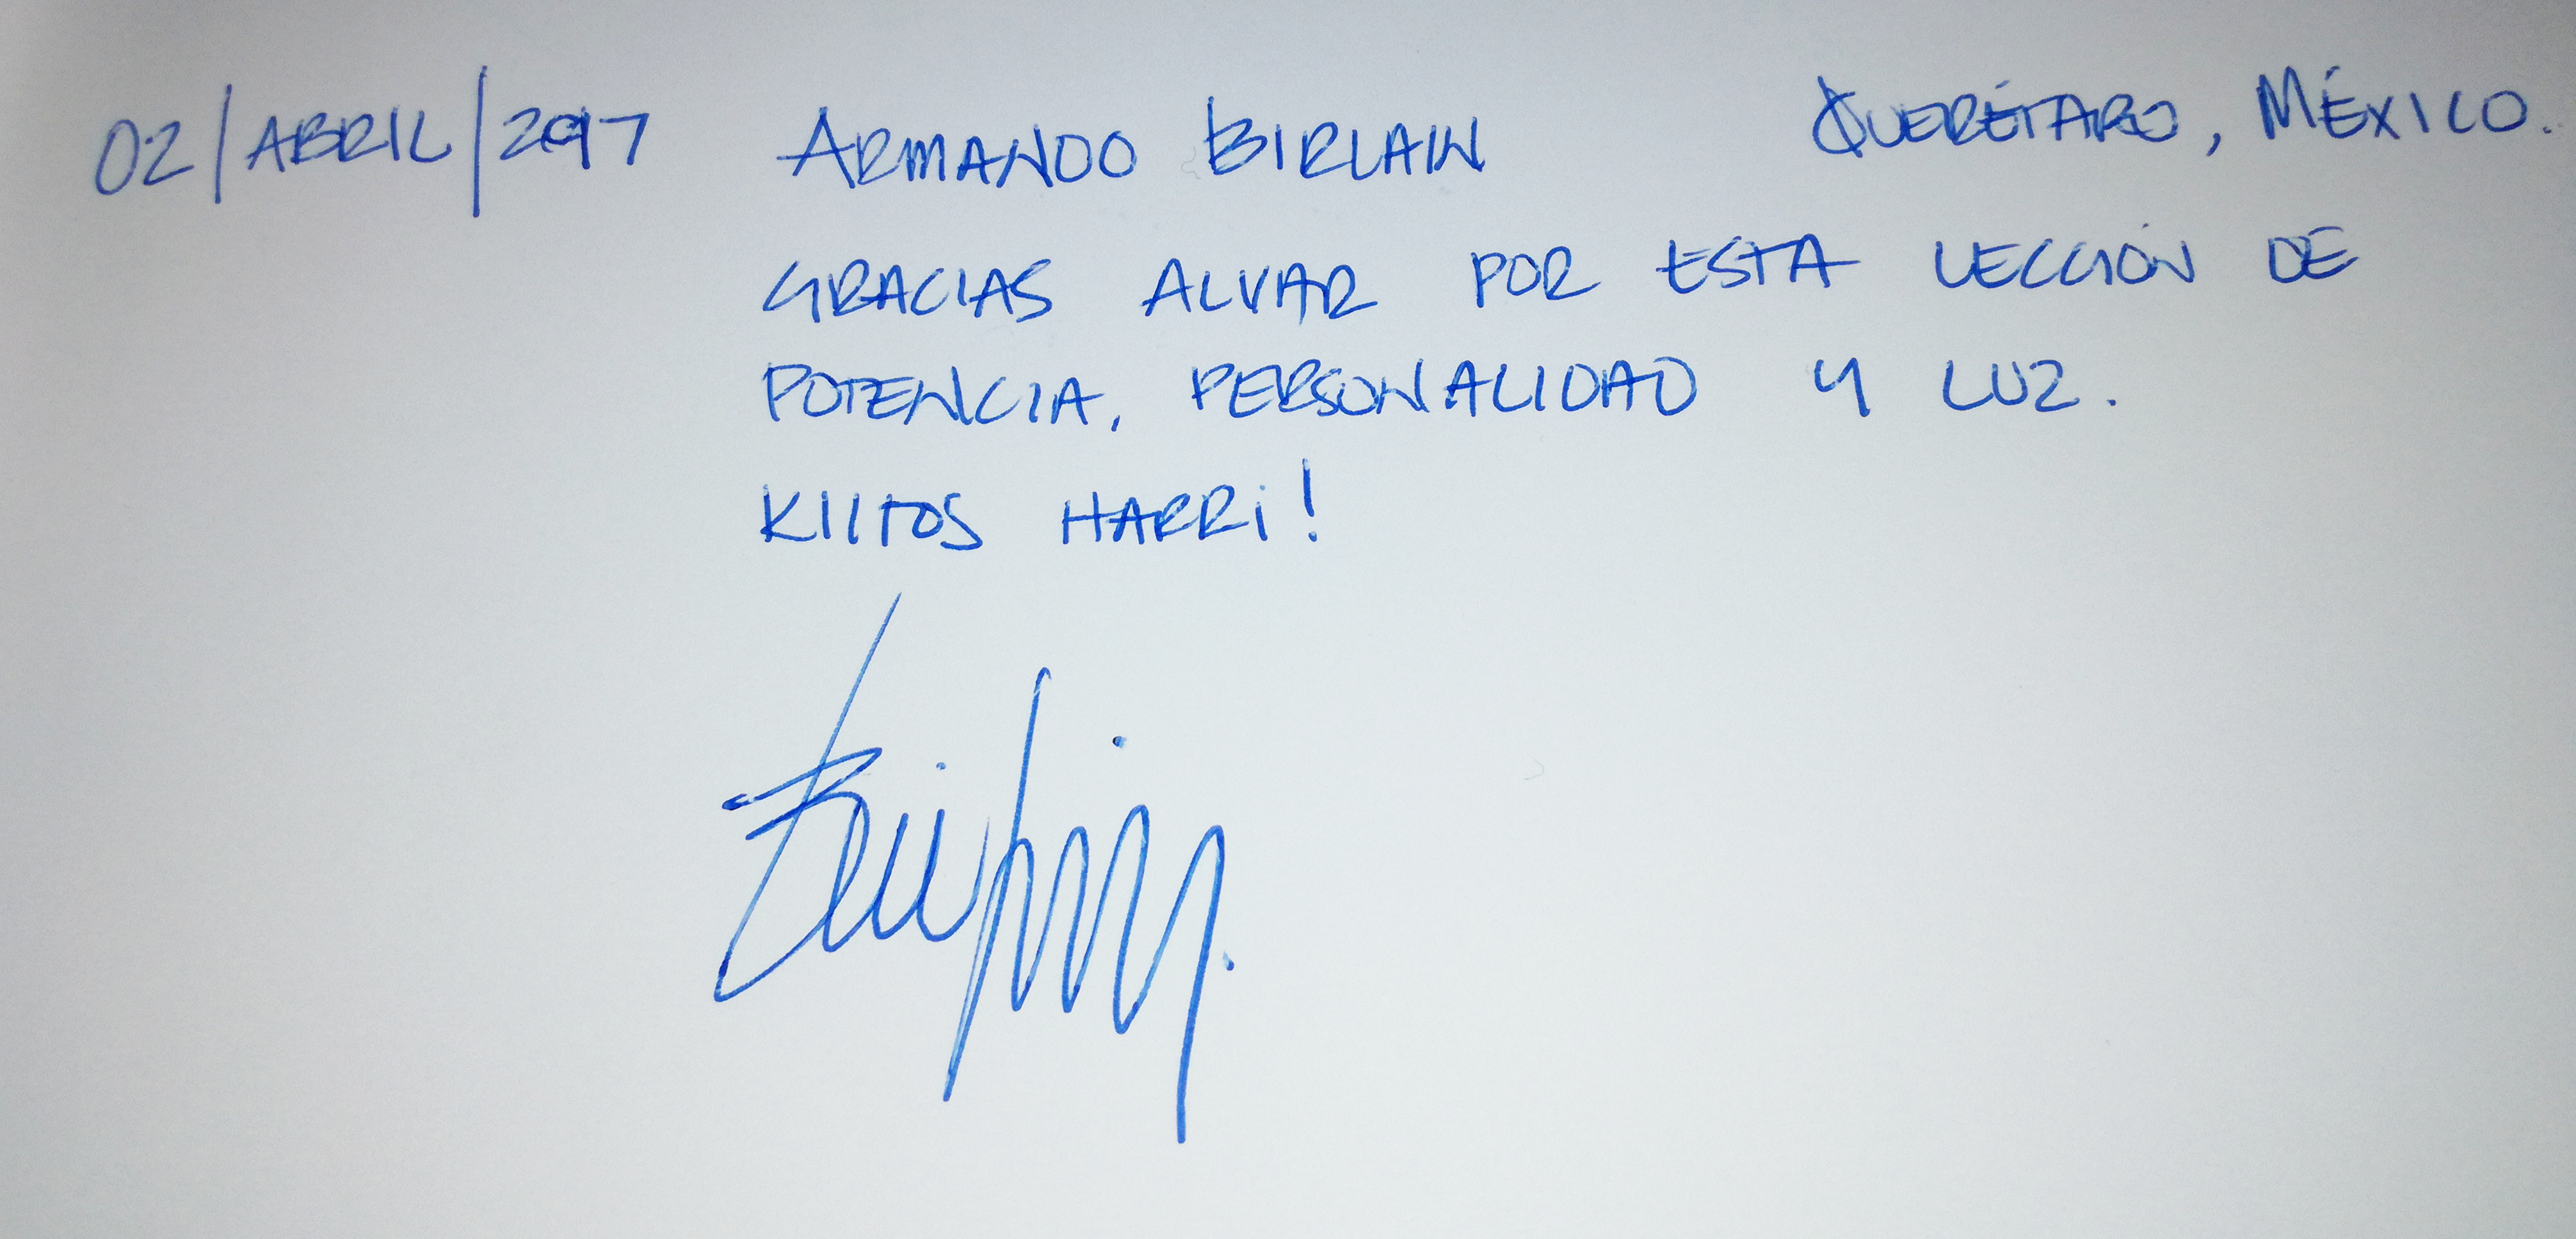 02/ABRIL/2017 ARMANDO BIRLAIN QUERÉTARO, MÉXICO.
GRACIAS ALVAR POR ESTA LECCIÓN DE
POTENCIA, PERSONALIDAD Y LUZ.
KIITOS HARRI!